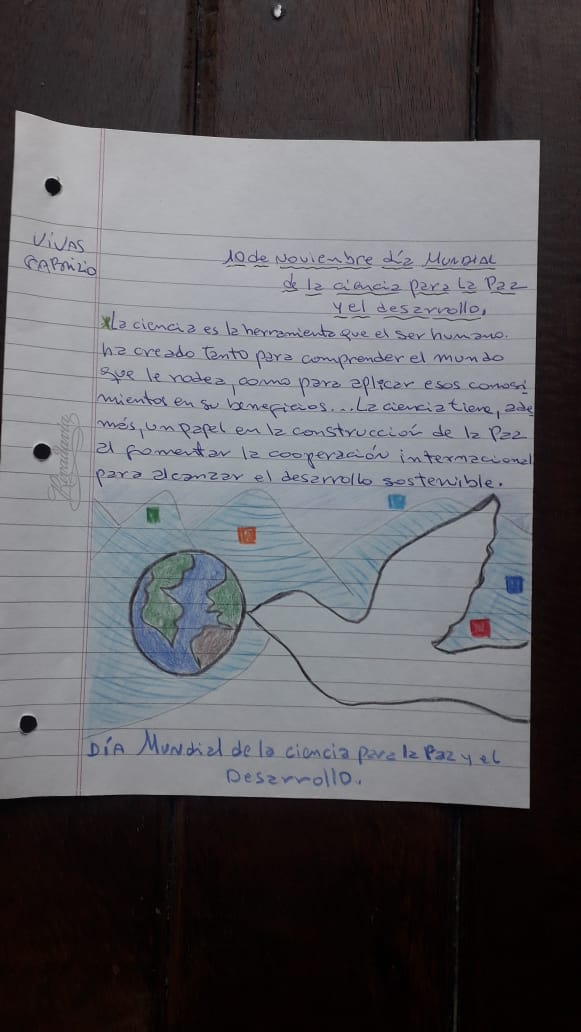 VIVAS
FABRIZIO
10 de Noviembre día MUNDIAL
de la ciencia para La Paz
y el desarrollo.
La ciencia es la herramienta que el ser humano.
ha creado tanto para comprender el mundo
que le rodea, como para aplicar esos conosi
mientos en su beneficios... La ciencia tiene, ade
más, un papel en la construcción de la Paz
al fomentar la cooperación internacional
para alcanzar el desarrollo sostenible.
DÍA Mundial de la ciencia para la Paz y el
Desarrollo.